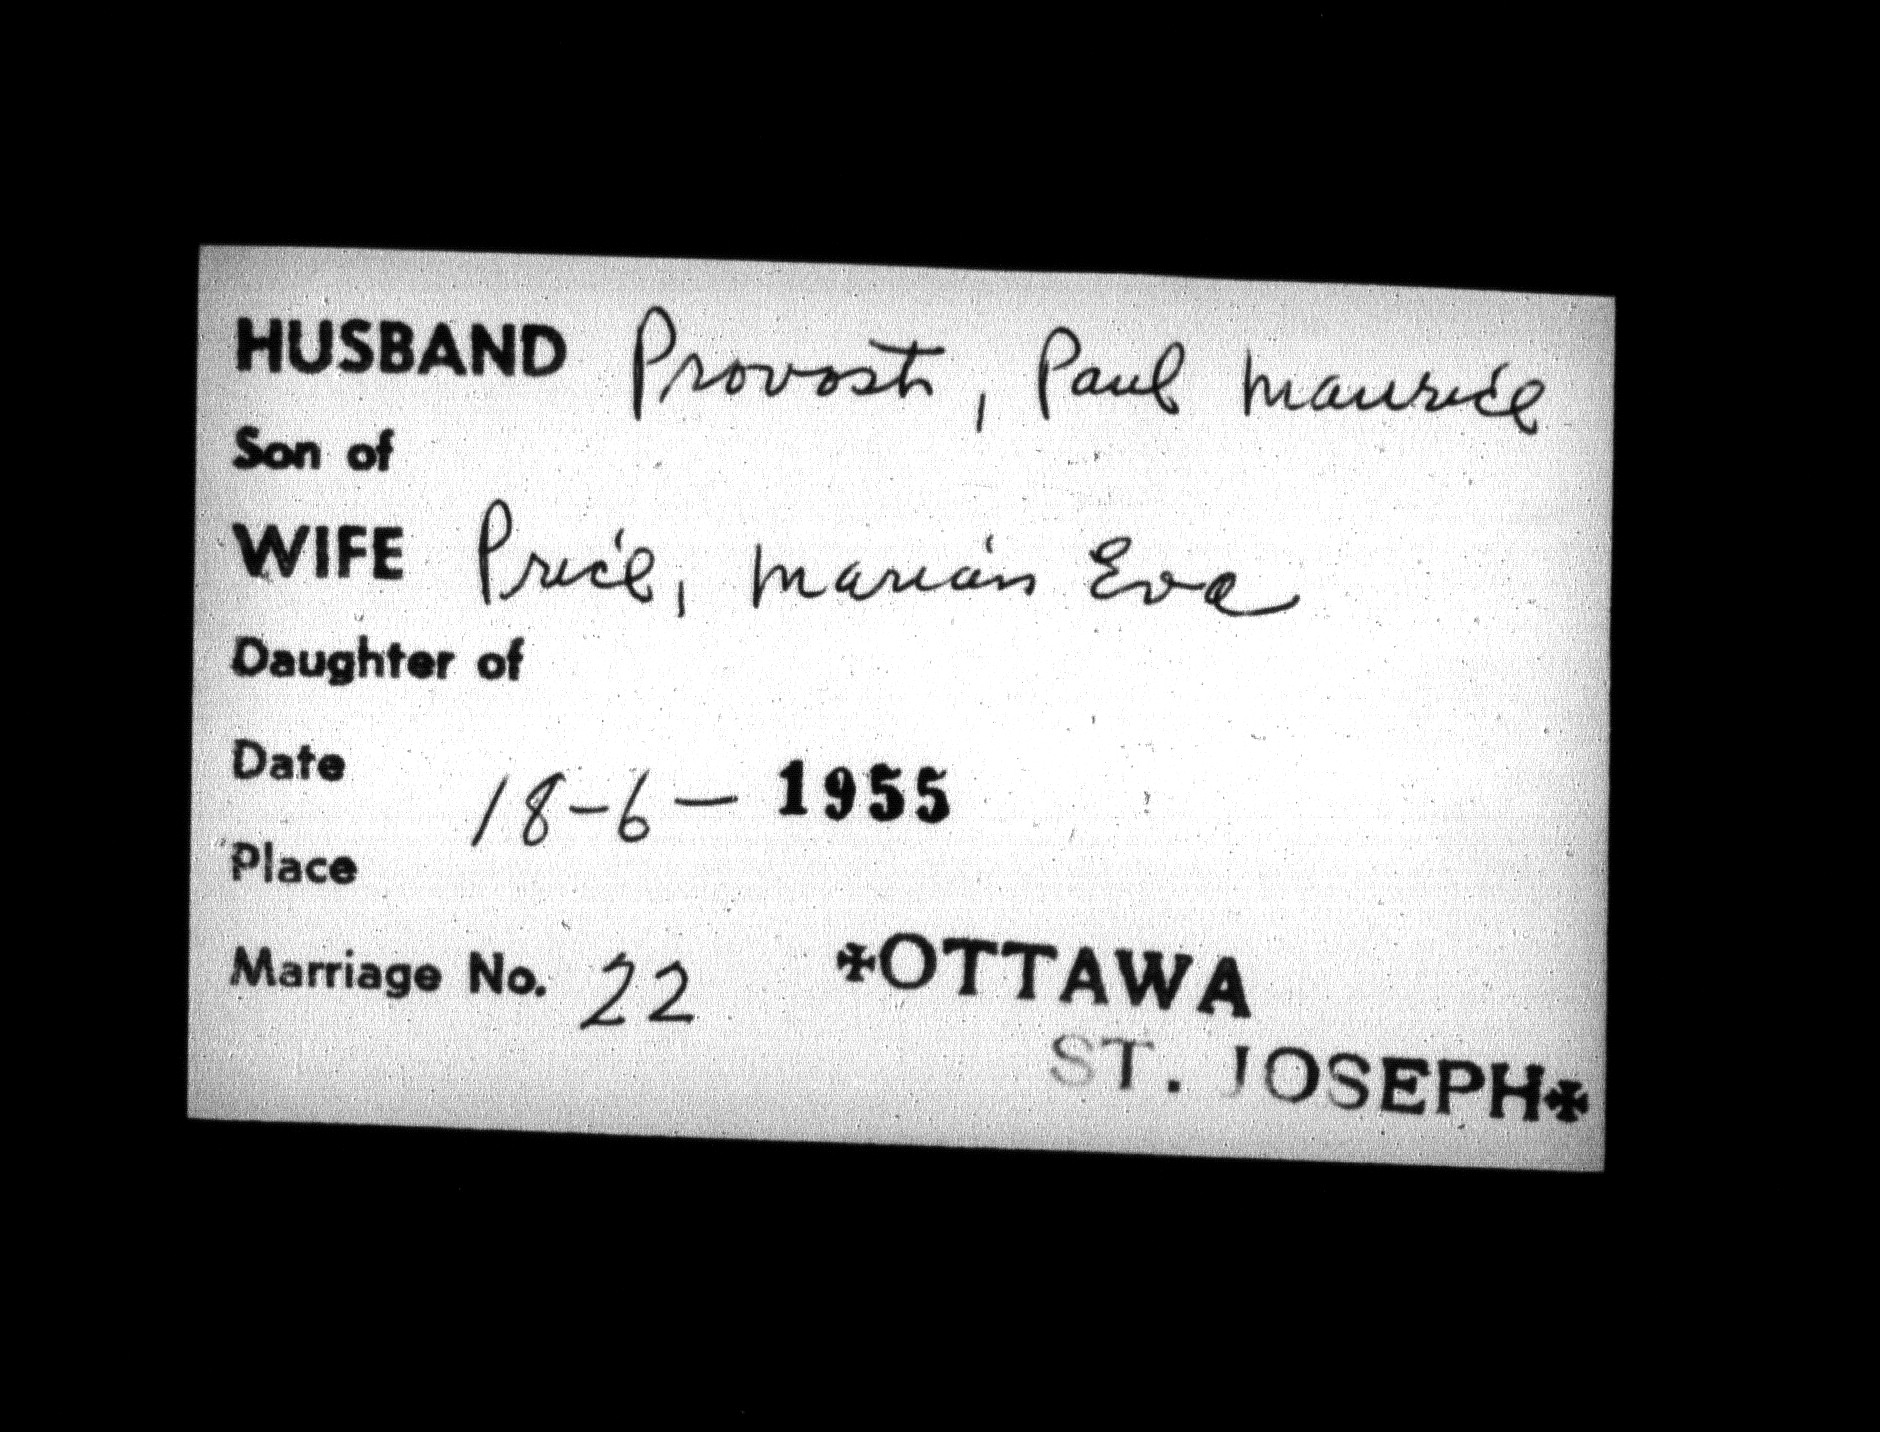 HUSBAND Provost, Paul Maurice
Son of
WIFE Price, Marian Eva
Daughter of
Date 18-6-1955
Place
Marriage No. 22 ✠OTTAWA
ST. JOSEPH✠